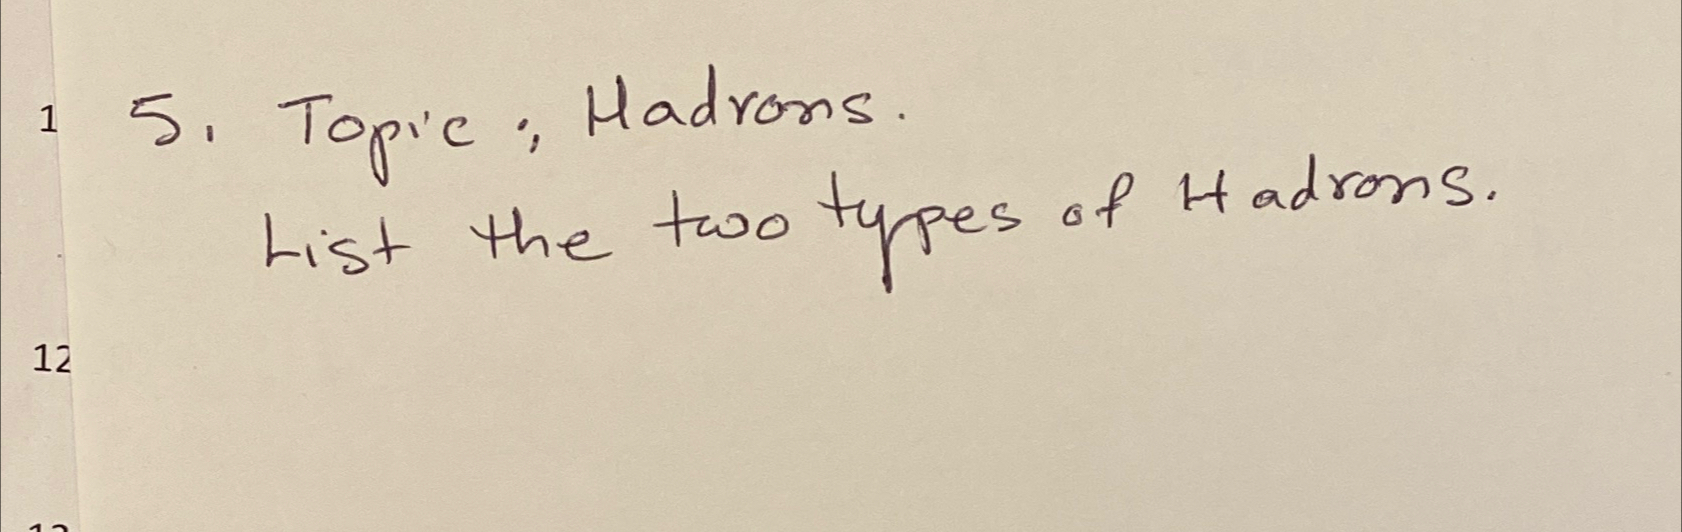 1 5. Topic: Hadrons.
List the two types of Hadrons.
12